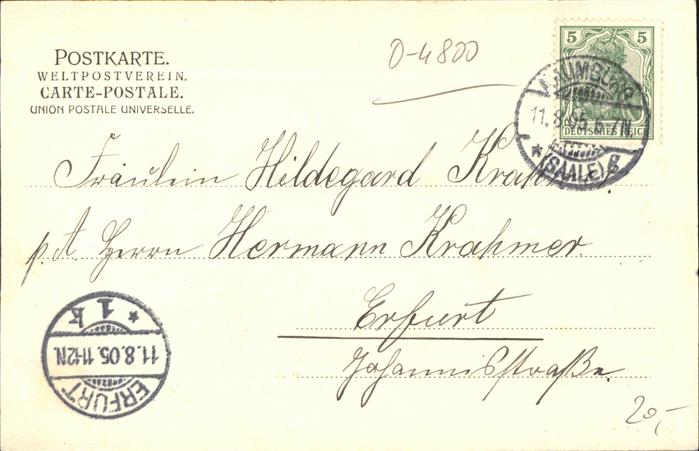 POSTKARTE.
WELTPOSTVEREIN.
CARTE-POSTALE.
UNION POSTALE UNIVERSELLE.
D-4800
5 5
DEUTSCHES REICH
NAUMBURG
11.8.05. 6-7N.
* (SAALE)
Fräulein Hildegard
p. A. Herrn Hermann Krahmer.
Erfurt
Johannisstraße.
ERFURT
11.8.05. 11-12N.
* 1 k
20,-